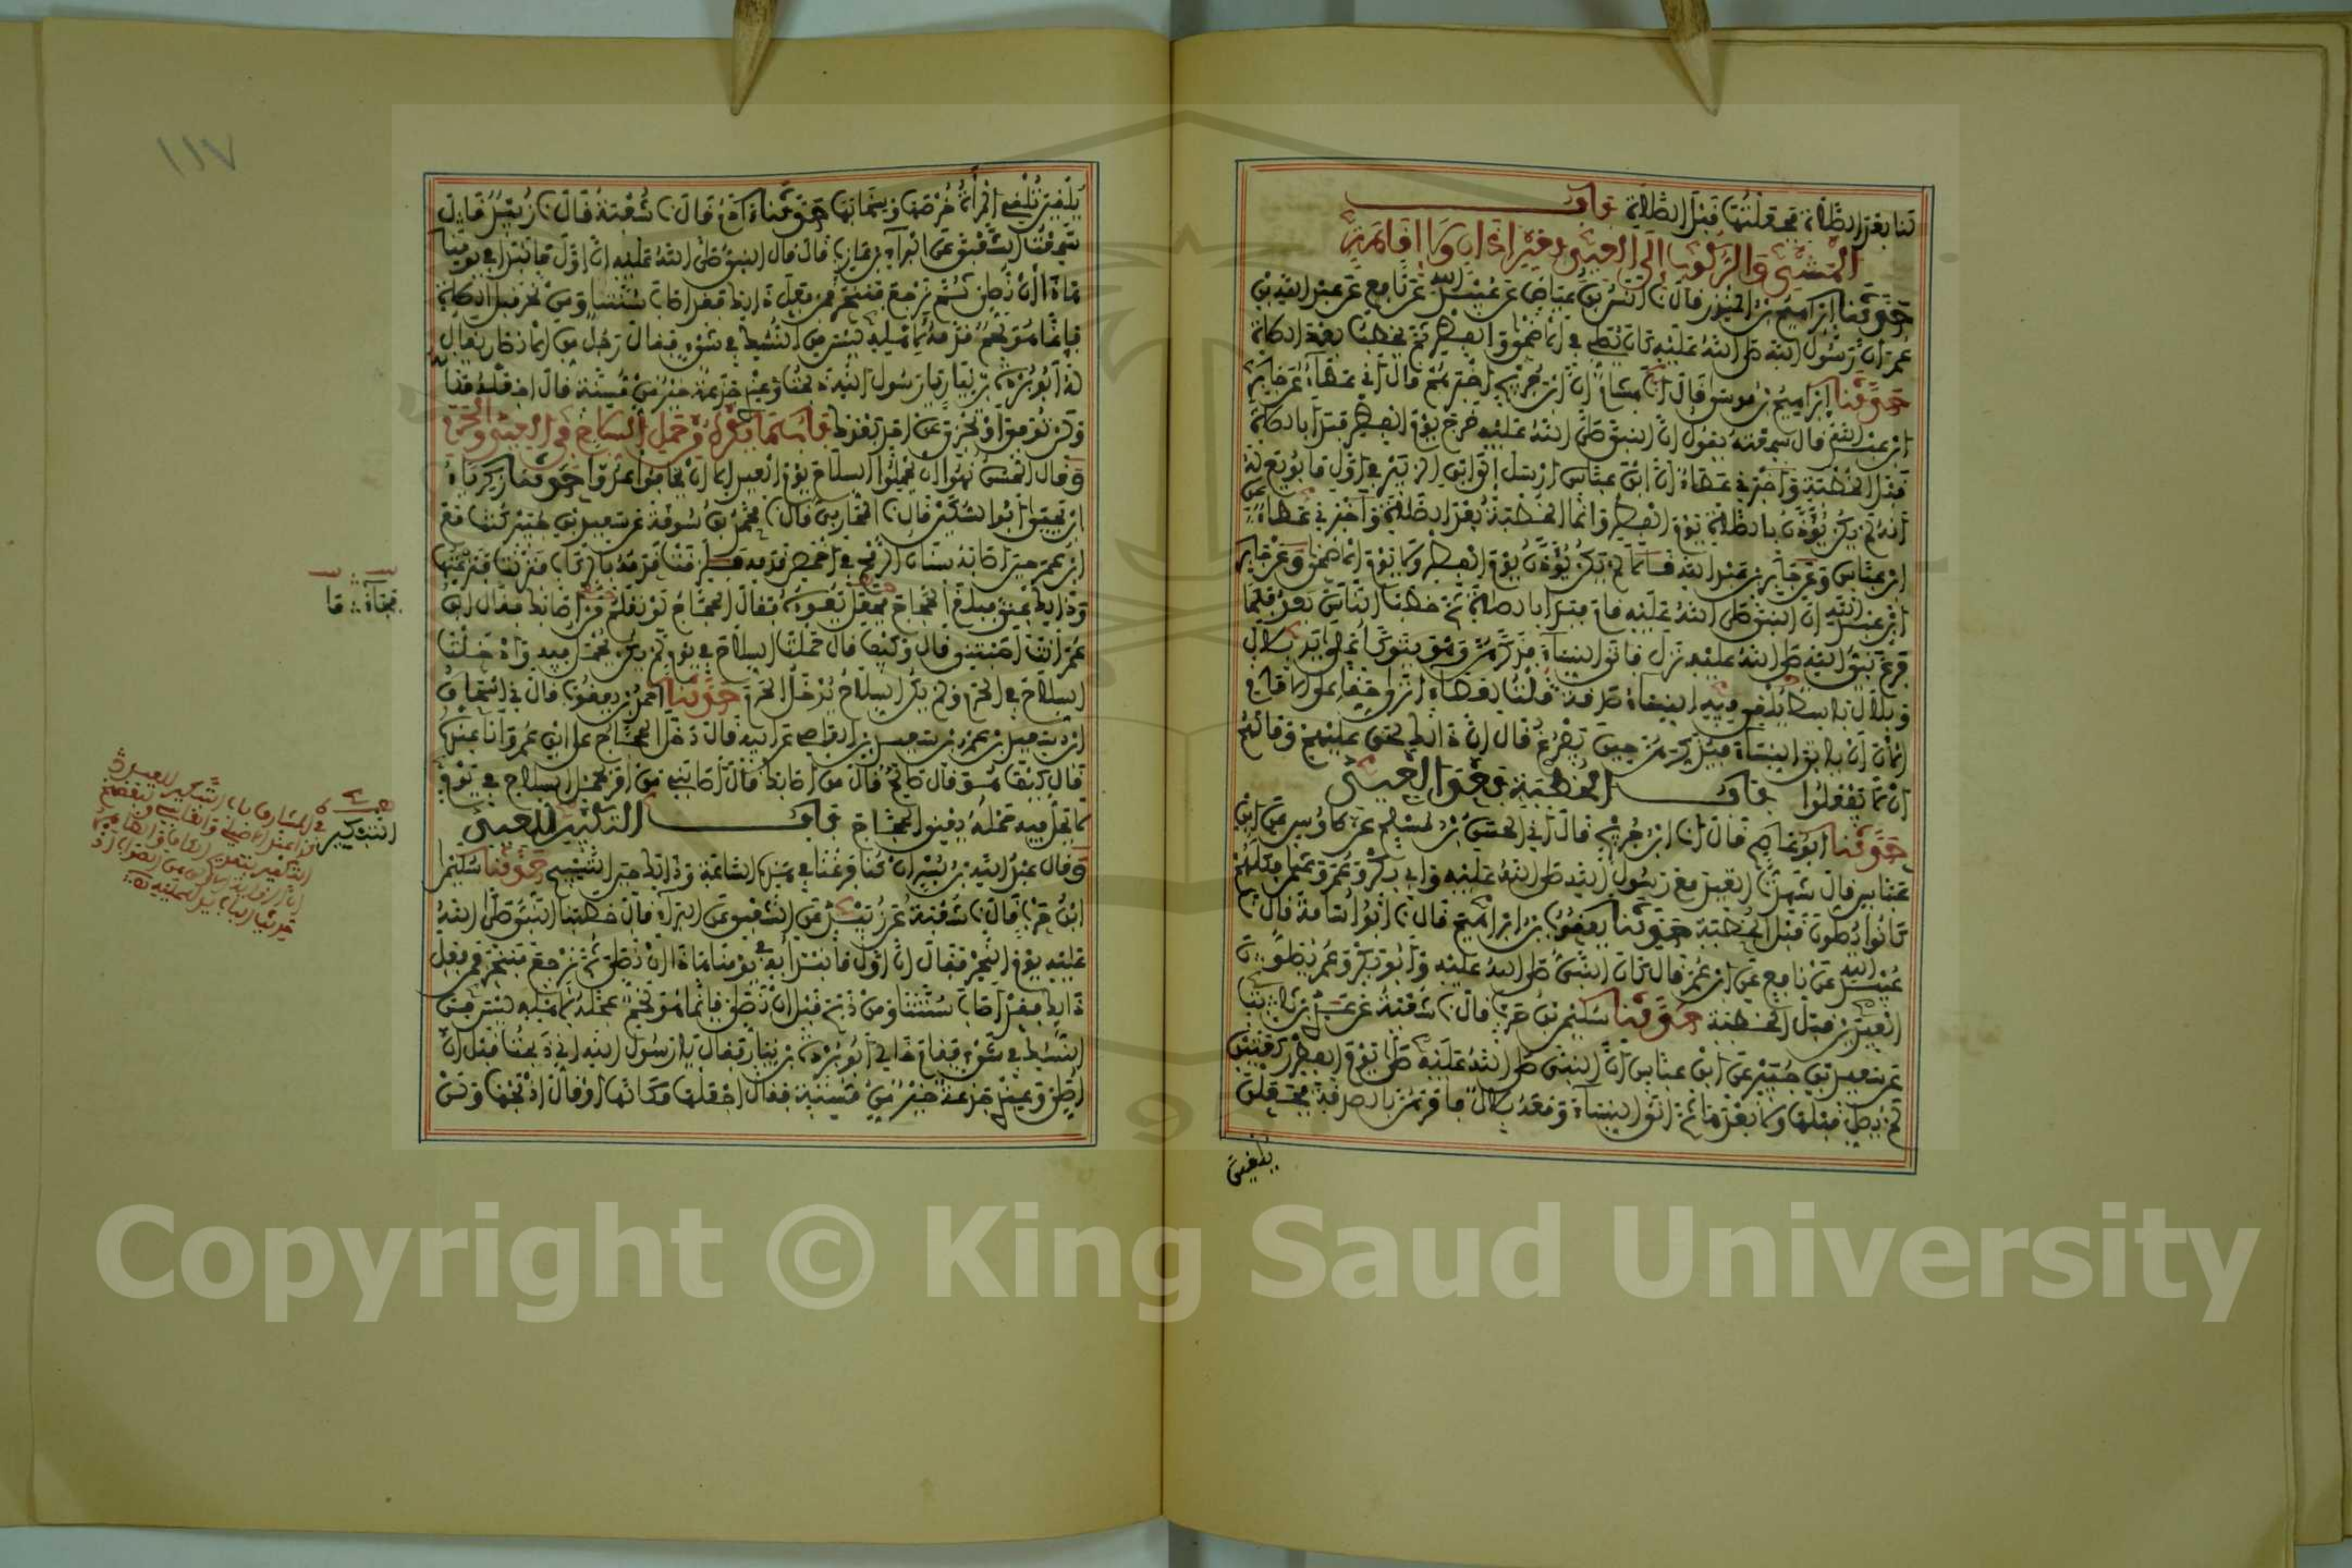 تنا بعد الصلاة فجعلتها قبل الصلاة باب
المشي والركوب إلى العيد بغير أذان ولا إقامة
حدثنا إبراهيم بن المنذر قال نا أنس بن عياض عن عبيد الله عن نافع عن عبد الله بن
عمر أن رسول الله صلى الله عليه كان يصلي في الأضحى والفطر ثم يخطب بعد الصلاة
حدثنا إبراهيم بن موسى قال أنا هشام أن ابن جريج أخبرهم قال أخبرني عطاء عن جابر
ابن عبد الله قال سمعته يقول إن النبي صلى الله عليه خرج يوم الفطر فبدأ بالصلاة
قبل الخطبة وأخبرني عطاء أن ابن عباس أرسل إلى ابن الزبير في أول ما بويع له
أنه لم يكن يؤذن بالصلاة يوم الفطر وإنما الخطبة بعد الصلاة وأخبرني عطاء عن
ابن عباس وعن جابر بن عبد الله قالا لم يكن يؤذن يوم الفطر ولا يوم الأضحى وعن جابر
ابن عبد الله أن النبي صلى الله عليه قام فبدأ بالصلاة ثم خطب الناس بعد فلما
فرغ نبي الله صلى الله عليه نزل فأتى النساء فذكرهن وهو يتوكأ على يد بلال
وبلال باسط ثوبه يلقي فيه النساء صدقة قلت لعطاء أترى حقا على الإمام
الآن أن يأتي النساء فيذكرهن حين يفرغ قال إن ذلك لحق عليهم وما لهم
أن لا يفعلوا باب الخطبة بعد العيد
حدثنا أبو عاصم قال أنا ابن جريج قال أخبرني الحسن بن مسلم عن طاوس عن ابن
عباس قال شهدت العيد مع رسول الله صلى الله عليه وأبي بكر وعمر وعثمان فكلهم
كانوا يصلون قبل الخطبة حدثنا يعقوب بن إبراهيم قال نا أبو أسامة قال نا
عبيد الله عن نافع عن ابن عمر قال كان النبي صلى الله عليه وأبو بكر وعمر يصلون
العيدين قبل الخطبة حدثنا سليمن بن حرب قال نا شعبة عن عدي بن ثابت
عن سعيد بن جبير عن ابن عباس أن النبي صلى الله عليه صلى يوم الفطر ركعتين
لم يصل قبلها ولا بعدها ثم أتى النساء ومعه بلال فأمرهن بالصدقة فجعلن
يلقين
١١٧
يلقين تلقي المرأة خرصها وسخابها حدثنا آدم قال نا شعبة قال نا زبيد قال
سمعت الشعبي عن البراء بن عازب قال قال النبي صلى الله عليه إن أول ما نبدأ في يومنا
هذا أن نصلي ثم نرجع فننحر فمن فعل ذلك فقد أصاب سنتنا ومن نحر قبل الصلاة
فإنما هو لحم قدمه لأهله ليس من النسك في شيء فقال رجل من الأنصار يقال
له أبو بردة بن نيار يا رسول الله ذبحت وعندي جذعة خير من مسنة قال اجعله مكانه
ولن توفي أو تجزي عن أحد بعدك باب ما يكره من حمل السلاح في العيد والحرم
وقال الحسن نهوا أن يحملوا السلاح يوم العيد إلا أن يخافوا عدوا حدثنا زكرياء
ابن يحيى أبو السكين قال نا المحاربي قال نا محمد بن سوقة عن سعيد بن جبير كنت مع
ابن عمر حين أصابه سنان الرمح في أخمص قدمه فلزقت قدمه بالركاب فنزلت فنزعتها
وذلك بمنى فبلغ الحجاج فجعل يعوده فقال الحجاج لو نعلم من أصابك فقال ابن
عمر أنت أصبتني قال وكيف قال حملت السلاح في يوم لم يكن يحمل فيه وأدخلت
السلاح في الحرم ولم يكن السلاح يدخل الحرم حدثنا أحمد بن يعقوب قال ني إسحاق
ابن سعيد بن عمرو بن سعيد بن العاصي عن أبيه قال دخل الحجاج على ابن عمر وأنا عنده
قال كيف هو قال صالح قال من أصابك قال أصابني من أمر بحمل السلاح في يوم
لا يحل فيه حمله يعني الحجاج باب التكبير للعيد
وقال عبد الله بن بسر إن كنا فرغنا في هذه الساعة وذلك حين التسبيح حدثنا سليمن
ابن حرب قال نا شعبة عن زبيد عن الشعبي عن البراء قال خطبنا النبي صلى الله
عليه يوم النحر فقال إن أول ما نبدأ به في يومنا هذا أن نصلي ثم نرجع فننحر فمن فعل
ذلك فقد أصاب سنتنا ومن ذبح قبل أن نصلي فإنما هو لحم عجله لأهله ليس من
النسك في شيء فقام خالي أبو بردة بن نيار فقال يا رسول الله إني ذبحت قبل أن
أصلي وعندي جذعة خير من مسنة فقال اجعلها مكانها أو قال اذبحها ولن
التبكير